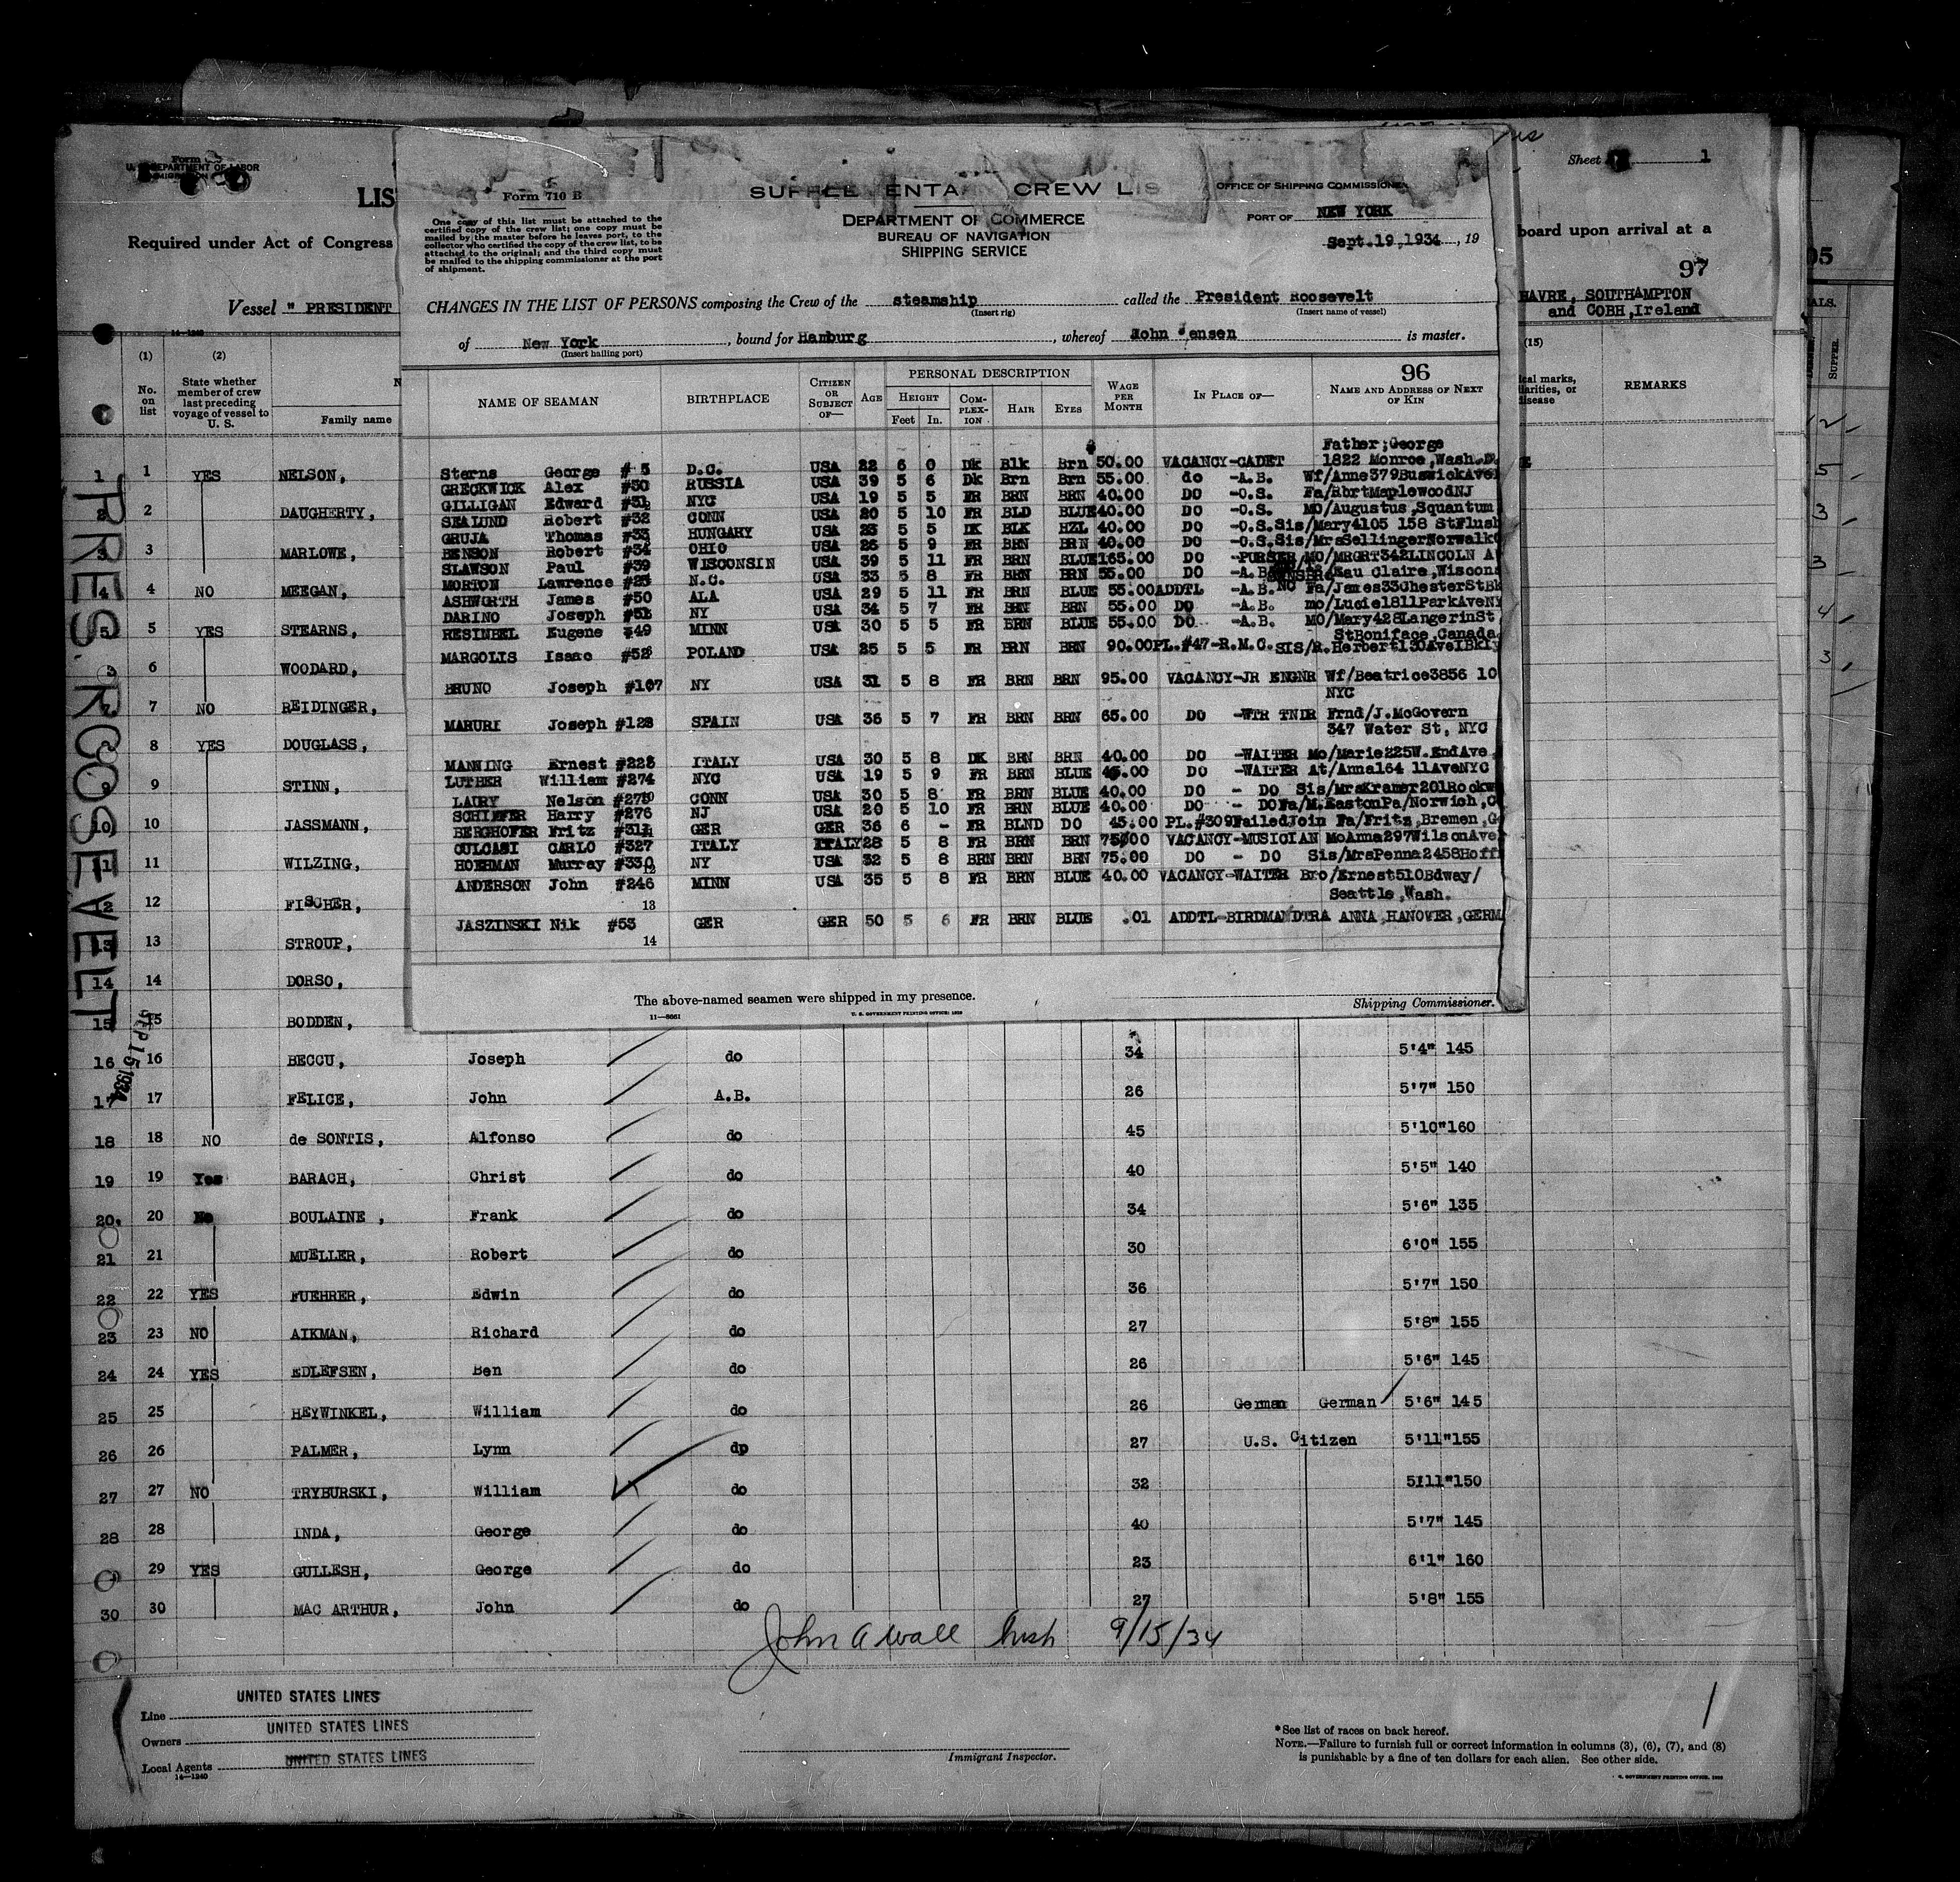 Form
U. S. DEPARTMENT OF LABOR
LIS
Required under Act of Congress
Vessel " PRESIDENT
14—1240
Sheet 1
board upon arrival at a
97
HAVRE, SOUTHAMPTON
and COBH, Ireland
Form 710 B
One copy of this list must be attached to the
certified copy of the crew list; one copy must be
mailed by the master before he leaves port, to the
collector who certified the copy of the crew list, to be
attached to the original; and the third copy must
be mailed to the shipping commissioner at the port
of shipment.
CREW LIS
DEPARTMENT OF COMMERCE
BUREAU OF NAVIGATION
SHIPPING SERVICE
OFFICE OF SHIPPING COMMISSIONER
PORT OF NEW YORK
Sept.19,1934, 19
CHANGES IN THE LIST OF PERSONS composing the Crew of the steamship called the President Roosevelt
(Insert rig) (Insert name of vessel)
of New York, bound for Hamburg, whereof John Jensen is master.
(Insert hailing port)
NAME OF SEAMAN BIRTHPLACE CITIZEN OR SUBJECT OF— AGE PERSONAL DESCRIPTION HEIGHT Feet In. COMPLEXION HAIR EYES WAGE PER MONTH IN PLACE OF— 96 NAME AND ADDRESS OF NEXT OF KIN
Father;George
Sterns George # 5 D.C. USA 22 6 0 Dk Blk Brn 50.00 VACANCY-CADET 1822 Monroe,Wash.D.
GRECKWICK Alex #30 RUSSIA USA 39 5 6 Dk Brn Brn 55.00 do -A.B. Wf/Anne379BuswickAve
GILLIGAN Edward #31 NYC USA 19 5 5 FR BRN BRN 40.00 DO -O.S. Fa/RbrtMaplewoodNJ
SEALUND Robert #32 CONN USA 20 5 10 FR BLD BLUE 40.00 DO -O.S. MO/Augustus,Squantum
GRUJA Thomas #33 HUNGARY USA 23 5 5 DK BLK HZL 40.00 DO -O.S. Sis/Mary4105 158 StFlush
BENSON Robert #34 OHIO USA 26 5 9 FR BRN BRN 40.00 DO -O.S. Sis/MrsSellingerNorwalk
SLAWSON Paul #39 WISCONSIN USA 39 5 11 FR BRN BLUE 165.00 DO -PURSER MO/MRGRT342LINCOLN A
Eau Claire,Wiscons
MORTON Lawrence #23 N.C. USA 33 5 8 FR BRN BRN 55.00 DO -A.B.
ASHWORTH James #50 ALA USA 29 5 11 FR BRN BLUE 55.00 ADDTL -A.B. Fa/James33ChesterStBk
DARINO Joseph #51 NY USA 34 5 7 FR BRN BRN 55.00 DO -A.B. mo/Lucie1811ParkAveNY
RESIMBEL Eugene #49 MINN USA 30 5 5 FR BRN BLUE 55.00 DO -A.B. MO/Mary428LangerinSt
StBoniface,Canada
MARGOLIS Isaac #52 POLAND USA 25 5 5 FR BRN BRN 90.00 PL.#47-R.M.C. SIS/R.Herbert130AveIBkly
BRUNO Joseph #107 NY USA 31 5 8 FR BRN BRN 95.00 VACANCY-JR ENGNR Wf/Beatrice3856 10
NYC
MARURI Joseph #128 SPAIN USA 36 5 7 FR BRN BRN 65.00 DO -WTR TNDR Frnd/J.McGovern
347 Water St, NYC
MANNING Ernest #228 ITALY USA 30 5 8 DK BRN BRN 40.00 DO -WAITER Mo/Marie225W.EndAve
LUTHER William #274 NYC USA 19 5 9 FR BRN BLUE 45.00 DO -WAITER At/Anna164 11AveNYC
LAURY Nelson #275 CONN USA 30 5 8 FR BRN BLUE 40.00 DO - DO Sis/MrsKramer201Rockw
SCHIFFER Harry #276 NJ USA 20 5 10 FR BRN BLUE 40.00 DO - DO Fa/M.EastonPa/Norwich,C
BERGHOFER Fritz #311 GER GER 36 6 - FR BLND DO 45.00 PL.#309FailedJoin Fa/Fritz,Bremen,G
CULCASI CARLO #327 ITALY ITALY 28 5 8 FR BRN BRN 75.00 VACANCY-MUSICIAN MoAnna297WilsonAve
HOEHMAN Murray #330 NY USA 32 5 8 BRN BRN BRN 75.00 DO - DO Sis/MrsPenna2458Hoff
12
ANDERSON John #246 MINN USA 35 5 8 FR BRN BLUE 40.00 VACANCY-WAITER Bro/Ernest510Bdway/
Seattle,Wash.
13
JASZINSKI Nik #53 GER GER 50 5 6 FR BRN BLUE .01 ADDTL-BIRDMAN DTRA ANNA,HANOVER,GERM
14
The above-named seamen were shipped in my presence.
Shipping Commissioner.
11—8661 U. S. GOVERNMENT PRINTING OFFICE: 1929
(1) (2) (15)
No. on list
State whether member of crew last preceding voyage of vessel to U. S.
Family name
REMARKS
PRES. ROOSEVELT
SEP 15 1934
1 1 YES NELSON,
2 2 DAUGHERTY,
3 3 MARLOWE,
4 4 NO MEEGAN,
5 5 YES STEARNS,
6 WOODARD,
7 NO REIDINGER,
8 YES DOUGLASS,
9 9 STINN,
10 10 JASSMANN,
11 11 WILZING,
12 12 FISCHER,
13 13 STROUP,
14 14 DORSO,
15 15 BODDEN,
16 16 BECCU, Joseph do 34 5'4" 145
17 17 FELICE, John A.B. 26 5'7" 150
18 18 NO de SONTIS, Alfonso do 45 5'10" 160
19 19 Yes BARACH, Christ do 40 5'5" 140
20 20 No BOULAINE, Frank do 34 5'6" 135
21 21 MUELLER, Robert do 30 6'0" 155
22 22 YES FUEHRER, Edwin do 36 5'7" 150
23 23 NO AIKMAN, Richard do 27 5'8" 155
24 24 YES EDLEFSEN, Ben do 26 5'6" 145
25 25 HEYWINKEL, William do 26 German German 5'6" 145
26 26 PALMER, Lynn dp 27 U.S. Citizen 5'11" 155
27 27 NO TRYBURSKI, William do 32 5'11" 150
28 28 INDA, George do 40 5'7" 145
29 YES GULLESH, George do 23 6'1" 160
30 30 MAC ARTHUR, John do 27 5'8" 155
John A Wall 9/15/34
Line UNITED STATES LINES
Owners UNITED STATES LINES
Local Agents UNITED STATES LINES
14—1240
Immigrant Inspector.
*See list of races on back hereof.
NOTE.—Failure to furnish full or correct information in columns (3), (6), (7), and (8)
is punishable by a fine of ten dollars for each alien. See other side.